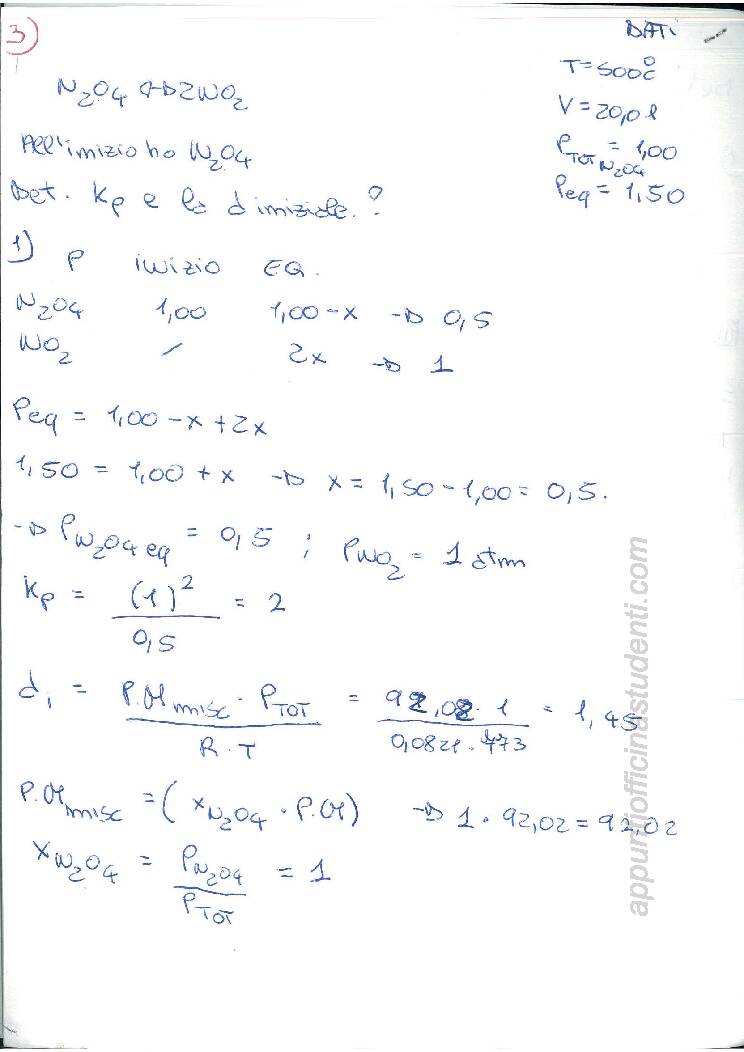 3)
DATI
T=500°C
N2O4 ⇄ 2NO2
V=20,0 l
All'inizio ho N2O4
PTOT N2O4 = 1,00
Det. Kp e la d iniziale.?
Peq = 1,50
1) P inizio EQ.
N2O4 1,00 1,00-x → 0,5
NO2 / 2x → 1
Peq = 1,00 -x +2x
1,50 = 1,00 + x → x = 1,50-1,00 = 0,5.
→ PN2O4 eq = 0,5 ; PNO2 = 1 atm
Kp = (1)² / 0,5 = 2
di = P.Mmisc · PTOT / R·T = 92,02·1 / 0,0821·773 = 1,45
P.Mmisc = (xN2O4 · P.M) → 1·92,02 = 92,02
xN2O4 = PN2O4 / PTOT = 1
appunti|officinastudenti.com